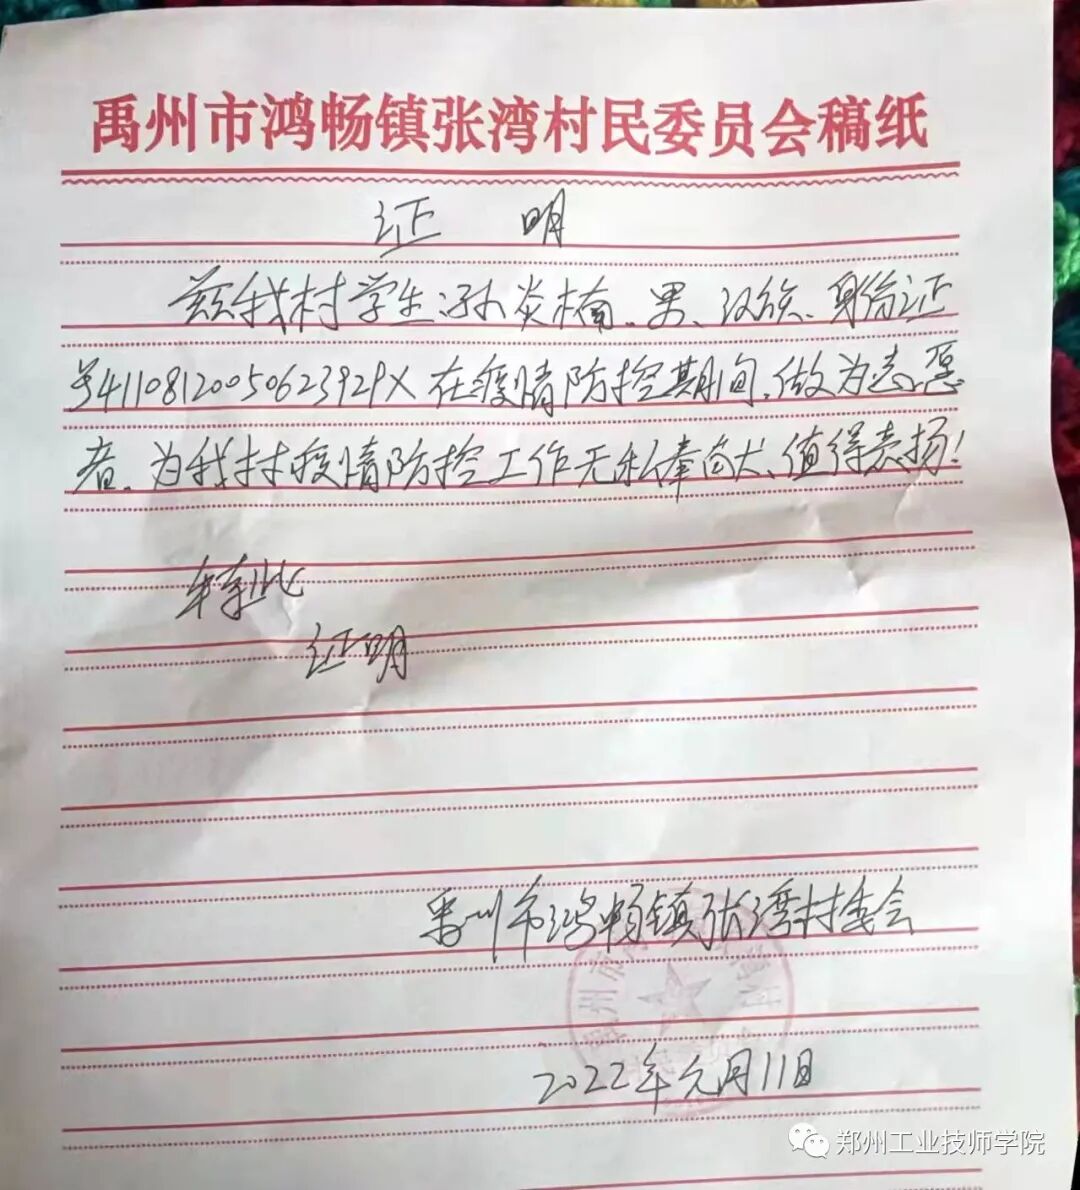 禹州市鸿畅镇张湾村民委员会稿纸
证 明
兹我村学生:孙炎楠、男、汉族、身份证
号41108120050623929X在疫情防控期间,做为志愿
者、为我村疫情防控工作无私奉献、值得表扬!
特此
证明
禹州市鸿畅镇张湾村委会
2022年元月11日
郑州工业技师学院